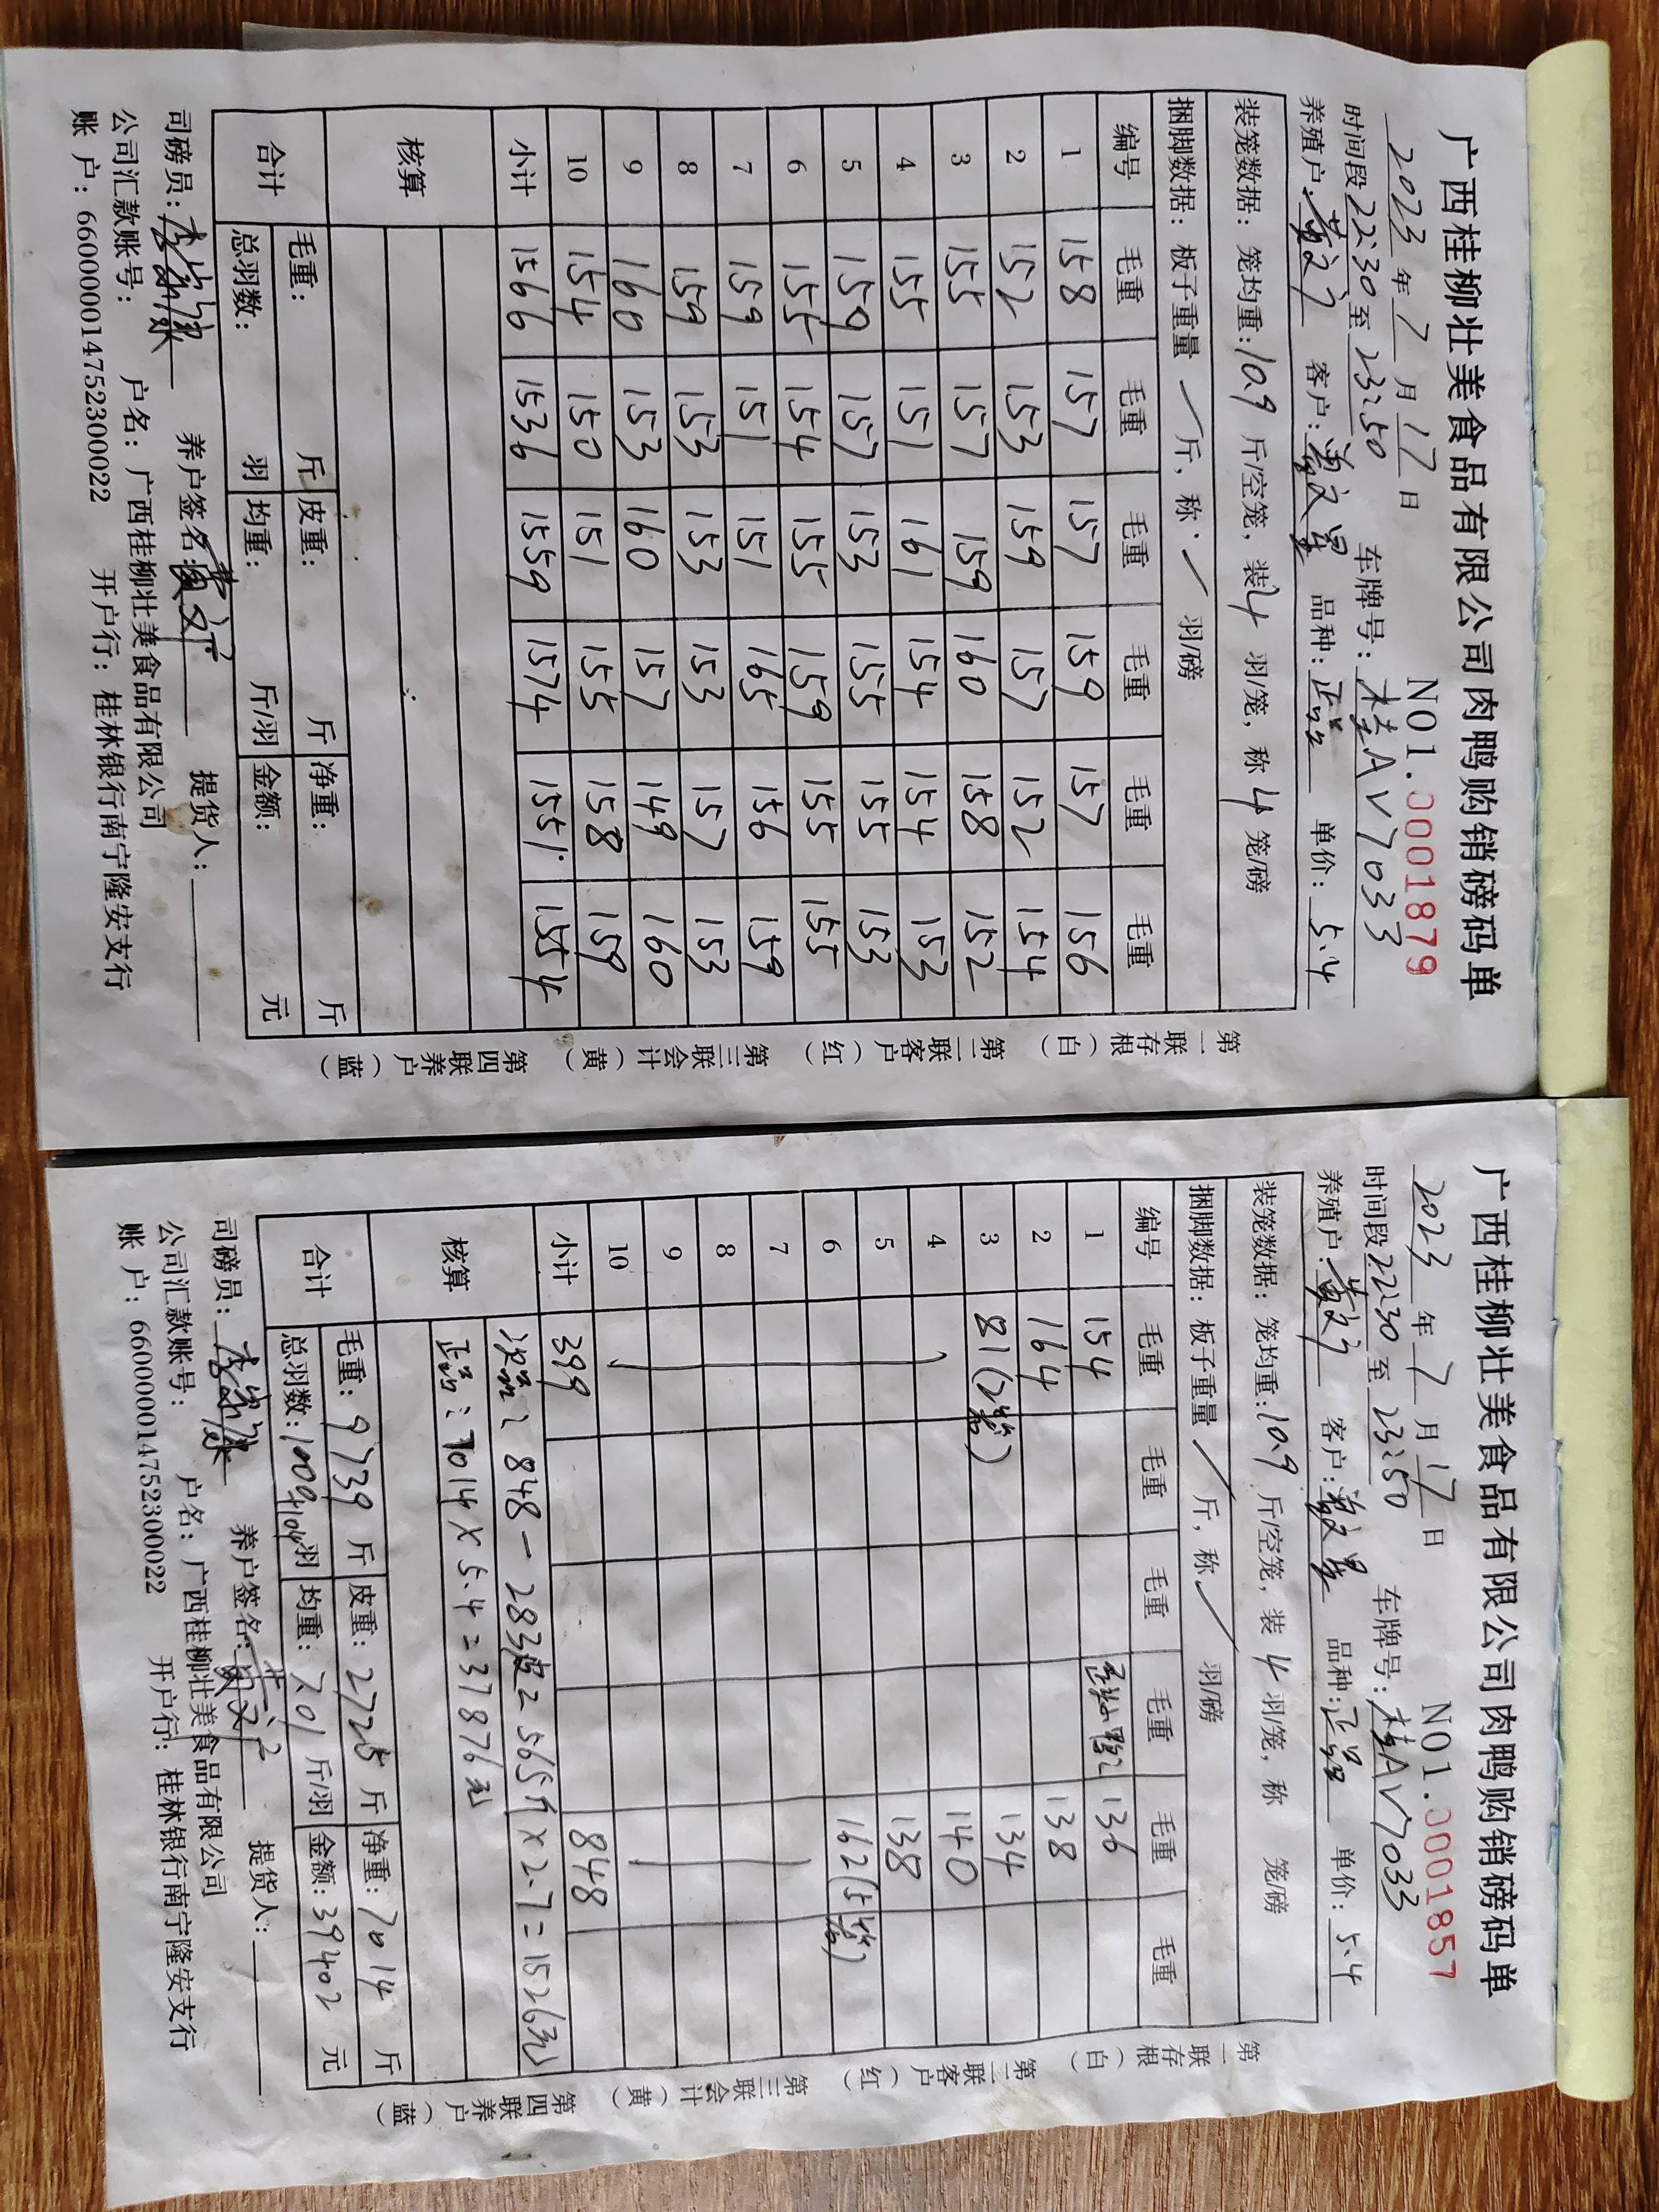 广西桂柳壮美食品有限公司肉鸭购销磅码单
NO1.0001879
2023年7月17日 车牌号：桂AV7033
时间段22:30至23:50
养殖户： 客户： 品种：正品 单价：5.4
装笼数据：笼均重：10.9斤/空笼，装4羽/笼，称4笼/磅
捆脚数据：板子重量/斤，称/羽/磅
编号 毛重 毛重 毛重 毛重 毛重 毛重
1 158 157 157 159 157 156
2 152 153 159 157 152 154
3 155 157 159 160 158 152
4 155 151 161 154 154 153
5 159 157 153 155 155 153
6 155 154 155 159 155 155
7 159 151 151 165 156 159
8 159 153 153 153 157 153
9 160 153 160 157 149 160
10 154 150 151 155 158 159
小计 1566 1536 1559 1574 1551 1554
核算
合计 毛重： 斤 皮重： 斤 净重： 斤
总羽数： 羽 均重： 斤/羽 金额： 元
司磅员： 养户签名： 提货人：
公司汇款账号： 户名：广西桂柳壮美食品有限公司
账 户：660000014752300022 开户行：桂林银行南宁隆安支行
第一联存根（白） 第二联客户（红） 第三联会计（黄） 第四联养户（蓝）
广西桂柳壮美食品有限公司肉鸭购销磅码单
NO1.0001857
2023年7月17日 车牌号：桂AV7033
时间段22:30至23:50
养殖户： 客户： 品种：正品 单价：5.4
装笼数据：笼均重：10.9斤/空笼，装4羽/笼，称 笼/磅
捆脚数据：板子重量/斤，称/羽/磅
编号 毛重 毛重 毛重 毛重 毛重 毛重
1 154 136
2 164 138
3 81(2笼) 134
4 140
5 138
6 162(5笼)
7
8
9
10
小计 399 848
次品：848-283皮=565斤×2.7=1526元
核算 正品：7014×5.4=37876元
合计 毛重：9739斤 皮重：2725斤 净重：7014斤
总羽数：1000+104羽 均重：7.01斤/羽 金额：39402元
司磅员： 养户签名： 提货人：
公司汇款账号： 户名：广西桂柳壮美食品有限公司
账 户：660000014752300022 开户行：桂林银行南宁隆安支行
第一联存根（白） 第二联客户（红） 第三联会计（黄） 第四联养户（蓝）